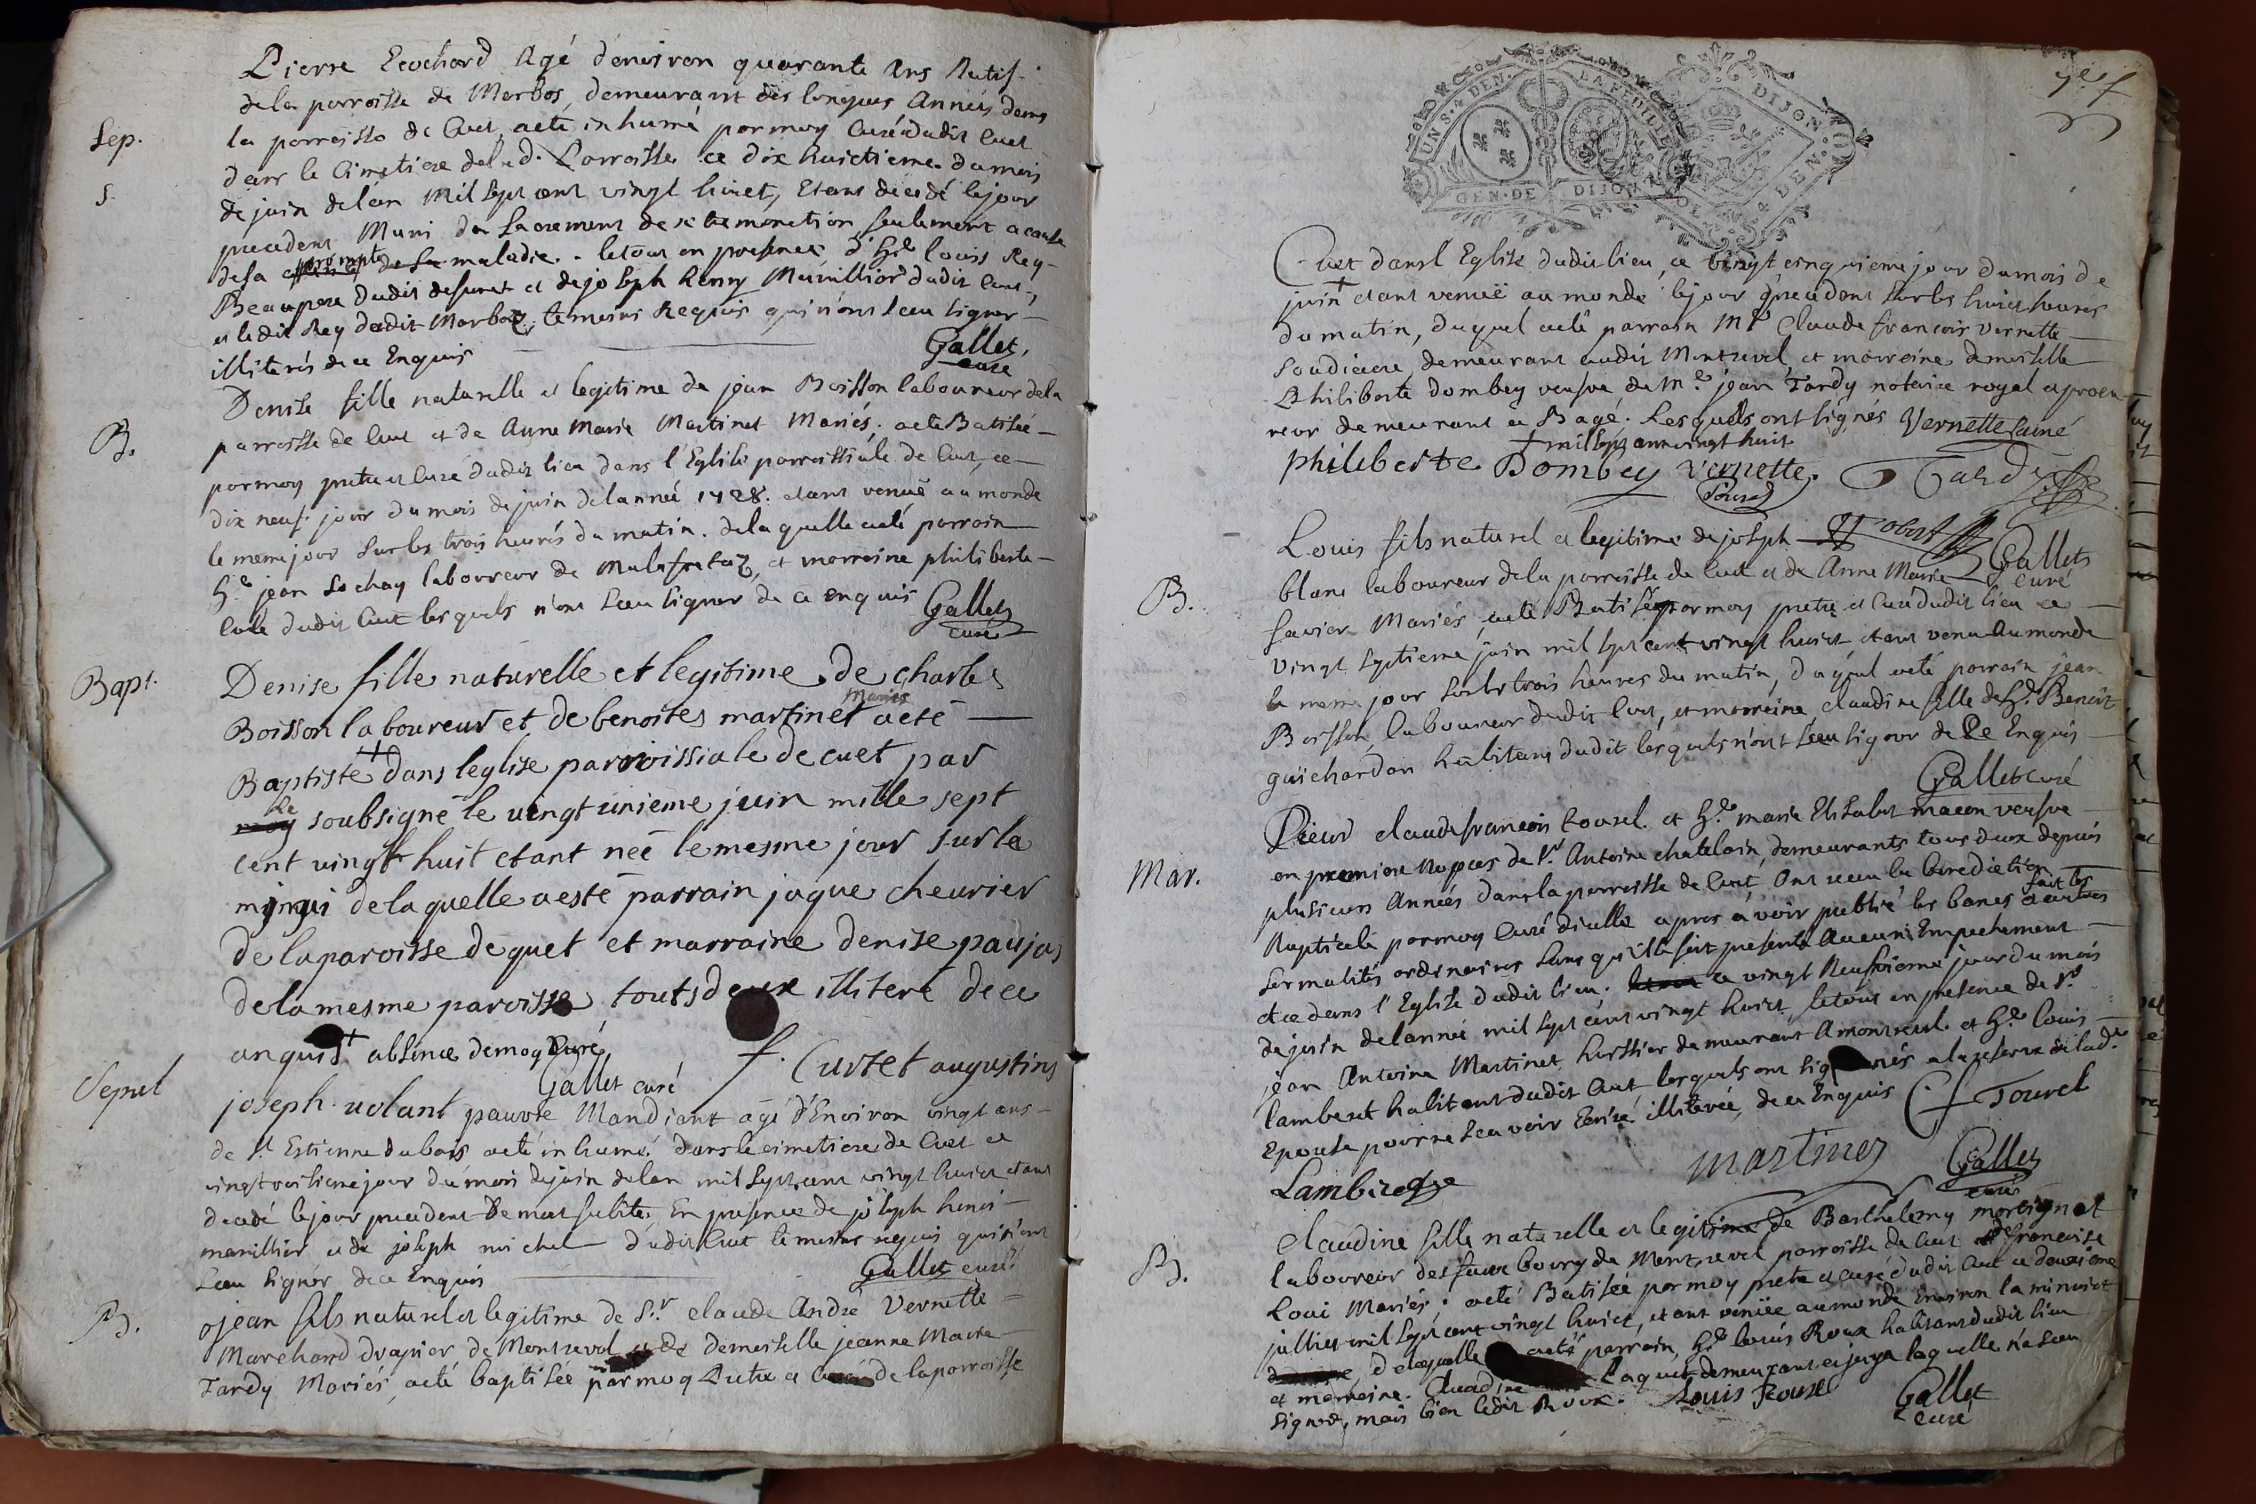 Pierre Ecochard Agé d'environ quarante Ans Natif
de la parroisse de Marbos, demeurant dés longues Années dans
Sep. la parroisse de Cuet, aeté inhumé par moy Curé dudit Cuet
dans le Cimetiere de lad. Parroisse ce dix huictieme du mois
S. de juin de l'an Mil sept cent vingt huict, Etant decedé le jour
precedent Muni du Sacrement de seulement a cause
de sa prompte maladie. le tout en presence d'h.e louis Rey
Beaupere dudit defunct et de joseph henry Marillier dudit Cuet,
et ledit Rey dudit Marboz, temoins Requis qui n'ont sceu signer
illiterés de ce Enquis
Gallet,
curé
Denise fille naturelle et legitime de jean Boisson laboureur de la
B. parroisse de Cuet et de Anne Marie Martinet Mariés. aeté Batisée
par moy pretre et Curé dudit lieu dans l'Eglise parroissiale de Cuet, ce
dix neuf. jour du mois de juin de l'année 1728. etant venuë au monde
le meme jour sur les trois heures du matin. de laquelle aeté parrain
h.e jean Sochay laboureur de Malafretaz, et marreine philiberte
dudit Cuet lesquels n'ont sceu signer de ce enquis Gallet
curé
Bapt. Denise fille naturelle et legitime de charles
mariés
Boisson laboureur et de benoites martinet aeté
Baptiste + dans leglise parroissiale de cuet par
le
moy soubsigné le vingt unième juin mille sept
cent vingt huit etant née le mesme jour sur la
minui de laquelle a esté parrain jaque cheurier
de la paroisse de quet et marraine denise paujas
de la mesme paroisse touts deux illiteré de ce
anquis + absence de moy Curé
Gallet curé f. Curtet augustins
Sepul joseph volant pauvre Mandiant agé d'Environ vingt ans
de St Estienne du bois aeté inhumé dans le cimetiere de Cuet ce
vingt troisieme jour du mois de juin de l'an mil sept cent vingt huict etant
decedé le jour precedent De mort subite, En presence de joseph henri
marillier et de joseph michel dudit Cuet temoins requis qui n'ont
sceu signer de ce Enquis Gallet curé
B. jean fils naturel et legitime de S.r claude André Vernette
Marchand drapier de Montrevel et de demoiselle jeanne Marie
Tardy Mariés, aeté baptisée par moy Pretre et Curé de la parroisse
UN S. 4 DEN. LA FEUILLE
GEN. DE DIJON
DIJON
4 DEN.
7.e f
Cuet dans l Eglise dudit lieu, ce vingt cinquieme jour du mois de
juin + etant venuë au monde le jour precedent sur les huict heures
du matin, duquel aeté parrain M.r Claude francois Vernette
Soudiacre, demeurant audit Montrevel et marreine demoiselle
Philiberte Dombey veufve de M.e jean Tardy notaire royal et procu
reur demeurant à Bagé. Lesquels ont signés Vernette lainé
+ mil sept cent vingt huit
philiberte Dombey Vernette. Tardy
Gallet
curé
Louis fils naturel et legitime de joseph
B. blanc laboureur de la parroisse de Cuet et de Anne Marie
favier Mariés, aeté Batisé par moy pretre et Curé dudit lieu ce
vingt septieme juin mil sept cent vingt huict etant venu au monde
le meme jour sur les trois heures du matin, duquel aeté parrain jean
Boisson laboureur dudit Cuet, et marreine claudine fille de h.e Benoit
guichardon habitans dudit lesquels n'ont sceu signer de ce Enquis
Gallet curé
Sieur claude francois tourel. et h.e marie Elisabet macon veufve
Mar. en premiere Nopces de S.r Antoine chatelain, demeurants tous deux depuis
plusieurs Années dans la parroisse de Cuet Ont receu la benediction
Nuptiale par moy Curé d'icelle apres avoir publié les bancs fait les autres
formalités ordinaires sans qu'il se soit presenté Aucun Empechement
et ce dans l'Eglise dudit lieu. ce vingt Neufvieme jour du mois
de juin de l'année mil sept cent vingt huict, le tout en presence de S.r
jean Antoine Martinet huissier demeurant a montrevel. et h.e louis
lambert habitant dudit Cuet lesquels ont signés a la reserve de lad.e
Epouse pour ne sçavoir Ecrire illiterée, de ce Enquis C f Tourel
Lambert martinet Gallet
curé
Claudine fille naturelle et legitime de Barthelemy
B. laboureur des faux bourg de Montrevel parroisse de Cuet et de francoise
Loui Mariés; aeté Batisée par moy pretre et curé dudit Cuet ce deuxieme
jullier mil sept cent vingt huict, etant venuë au monde Environ la minuict
de laquelle aeté parrain, h.e louis Roux habitant dudit lieu
et marreine. Claudine laquelle n'a sceu
signer, mais bien ledit Roux. Louis Roux Gallet
curé